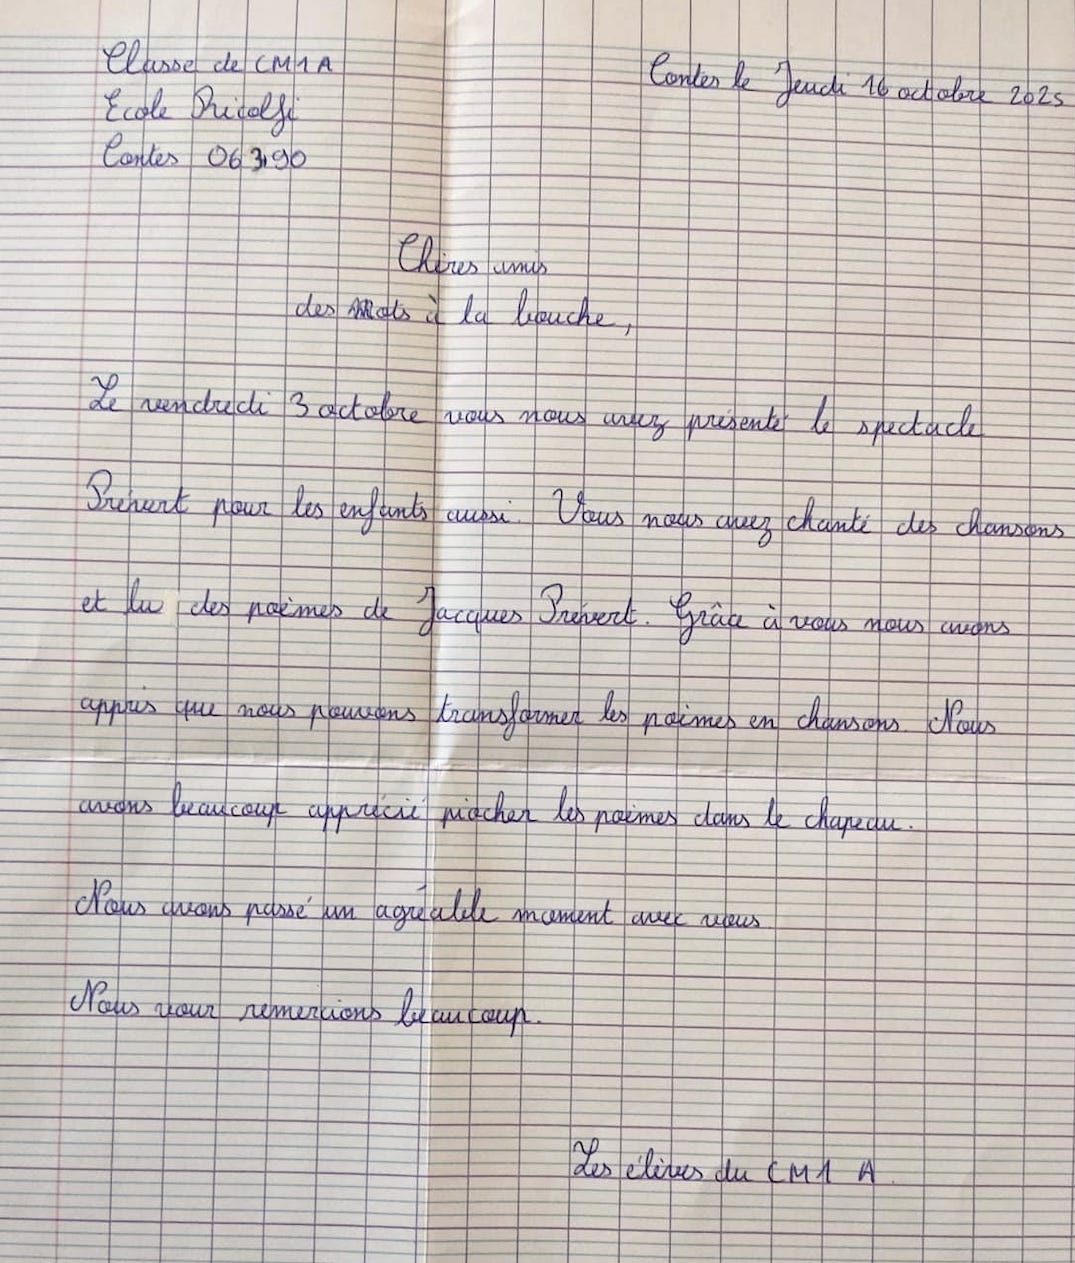 Classe de CM1A
Contes le Jeudi 16 octobre 2025
Ecole Ricolfi
Contes 06390
Chères amis
des Mots à la bouche,
Le vendredi 3 octobre vous nous avez présenté le spectacle
Prévert pour les enfants aussi. Vous nous avez chanté des chansons
et lu des poèmes de Jacques Prévert. Grâce à vous nous avons
appris que nous pouvons transformer les poèmes en chansons. Nous
avons beaucoup apprécié piocher les poèmes dans le chapeau.
Nous avons passé un agréable moment avec vous.
Nous vour remercions beaucoup.
Les élèves du CM1 A.